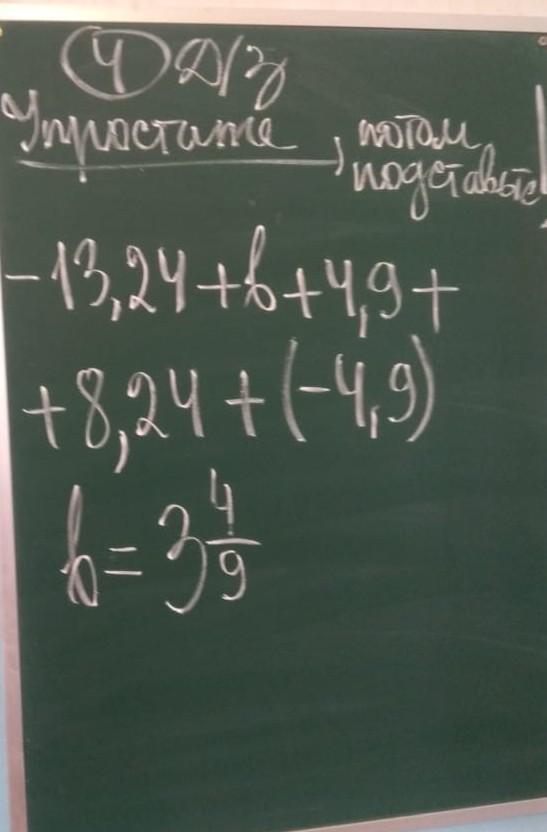 ④ Д/з
Упростите, потом
подставьте
-13,24+b+4,9+
+8,24+(-4,9)
b=3 4/9